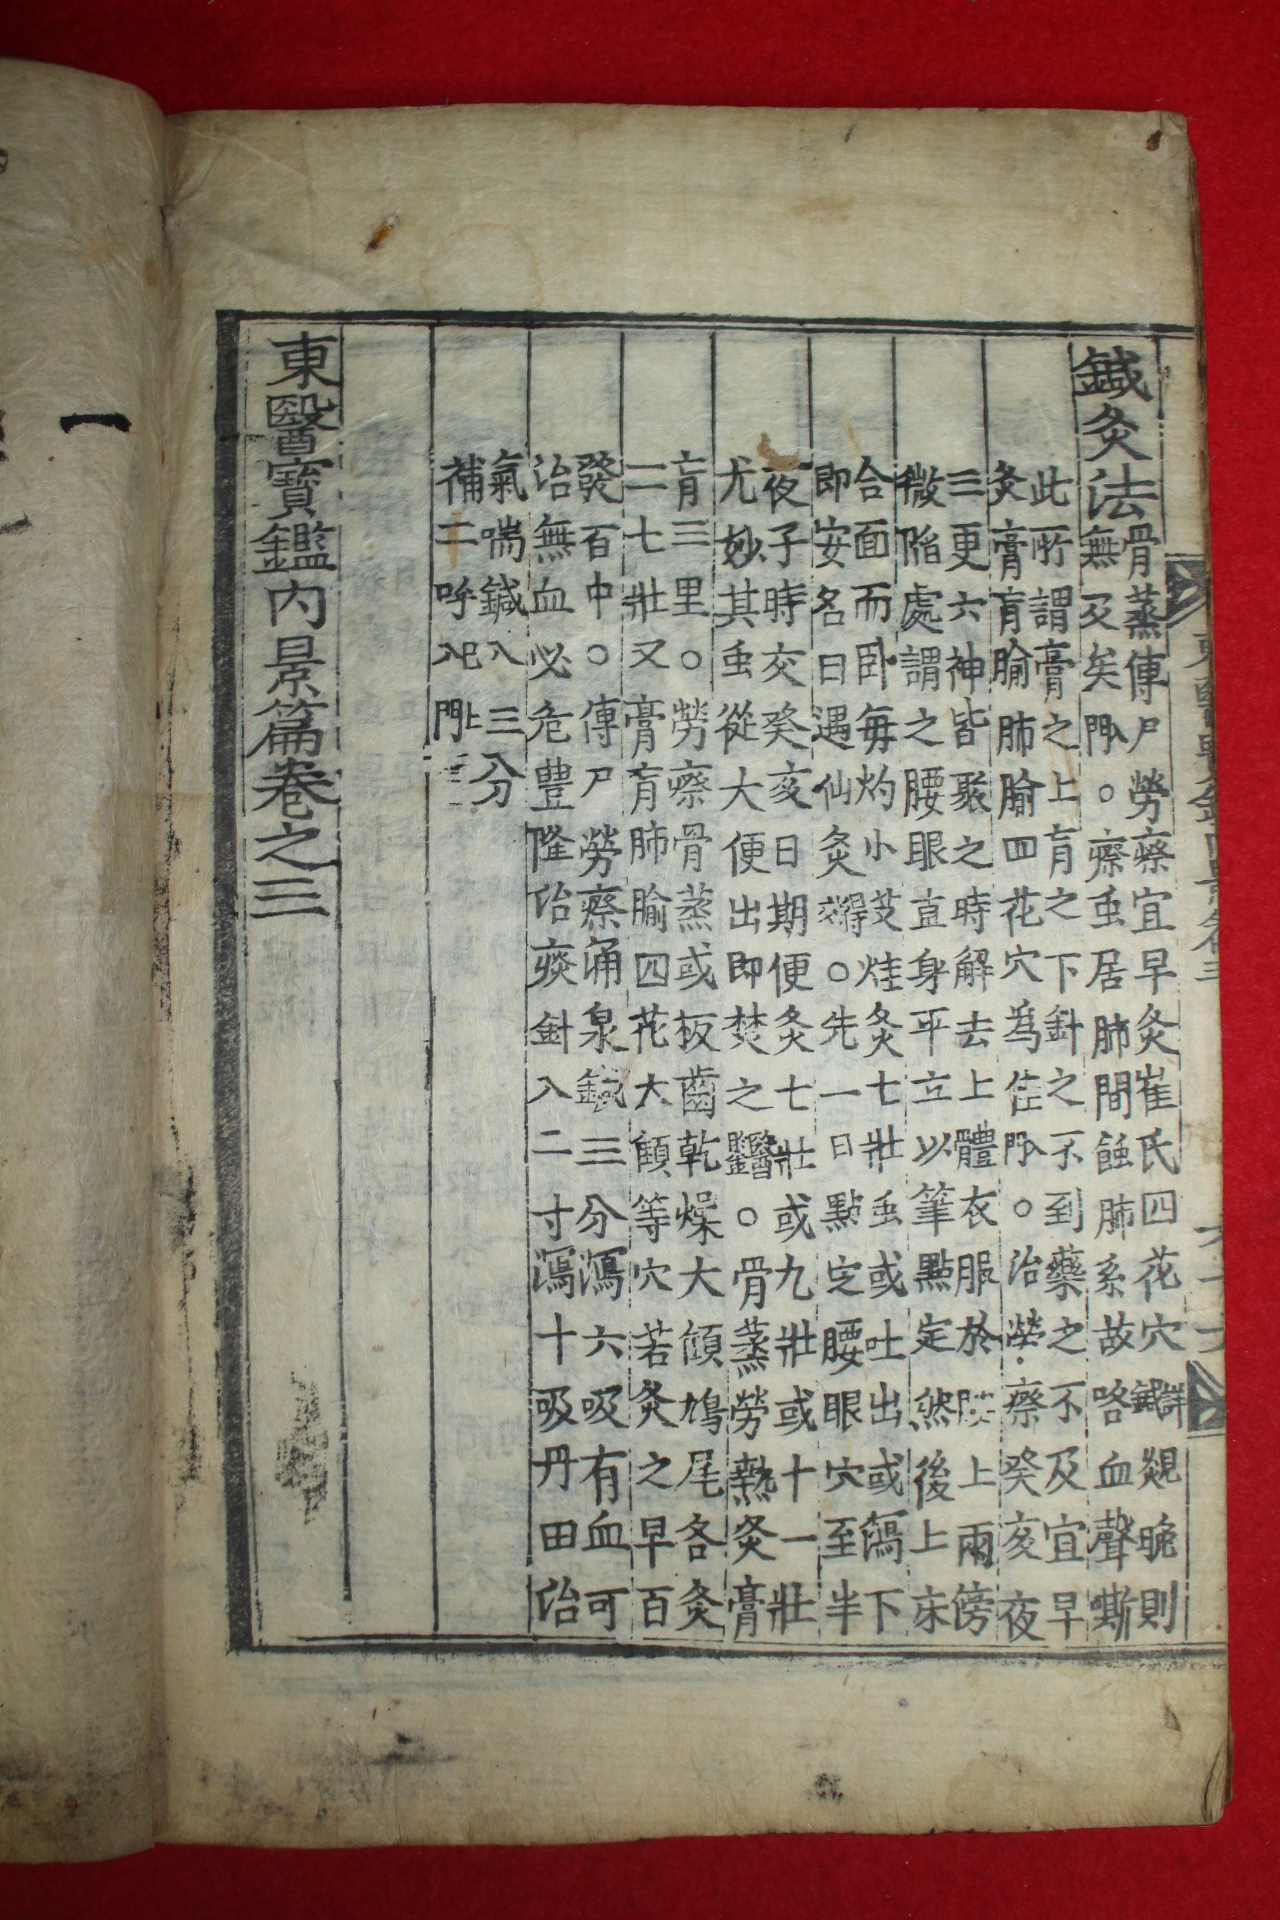 東醫寶鑑内景卷三
鍼灸法
骨蒸傳尸勞瘵宜早灸崔氏四花穴詳見鍼灸晚則
無及矣入門○瘵虫居肺間蝕肺系故咯血聲嘶
此所謂膏之上肓之下針之不到藥之不及宜早
灸膏肓腧肺腧四花穴爲佳入門○治勞瘵癸亥夜
三更六神皆聚之時解去上體衣服於腰上兩傍
微陷處謂之腰眼直身平立以筆點定然後上床
合面而卧每灼小艾炷灸七壯虫或吐出或瀉下
即安名曰遇仙灸得效○先一日點定腰眼穴至半
夜子時交癸亥日期便灸七壯或九壯或十一壯
尤妙其虫從大便出即焚之醫鑑○骨蒸勞熱灸膏
肓三里○勞瘵骨蒸或板齒乾燥大顀鳩尾各灸
二七壯又膏肓肺腧四花大顀等穴若灸之早百
發百中○傳尸勞瘵涌泉鍼三分瀉六吸有血可
治無血必危豊隆治痰針入二寸瀉十吸丹田治
氣喘鍼入三分
補二呼已上入門
東醫寶鑑内景篇卷之三